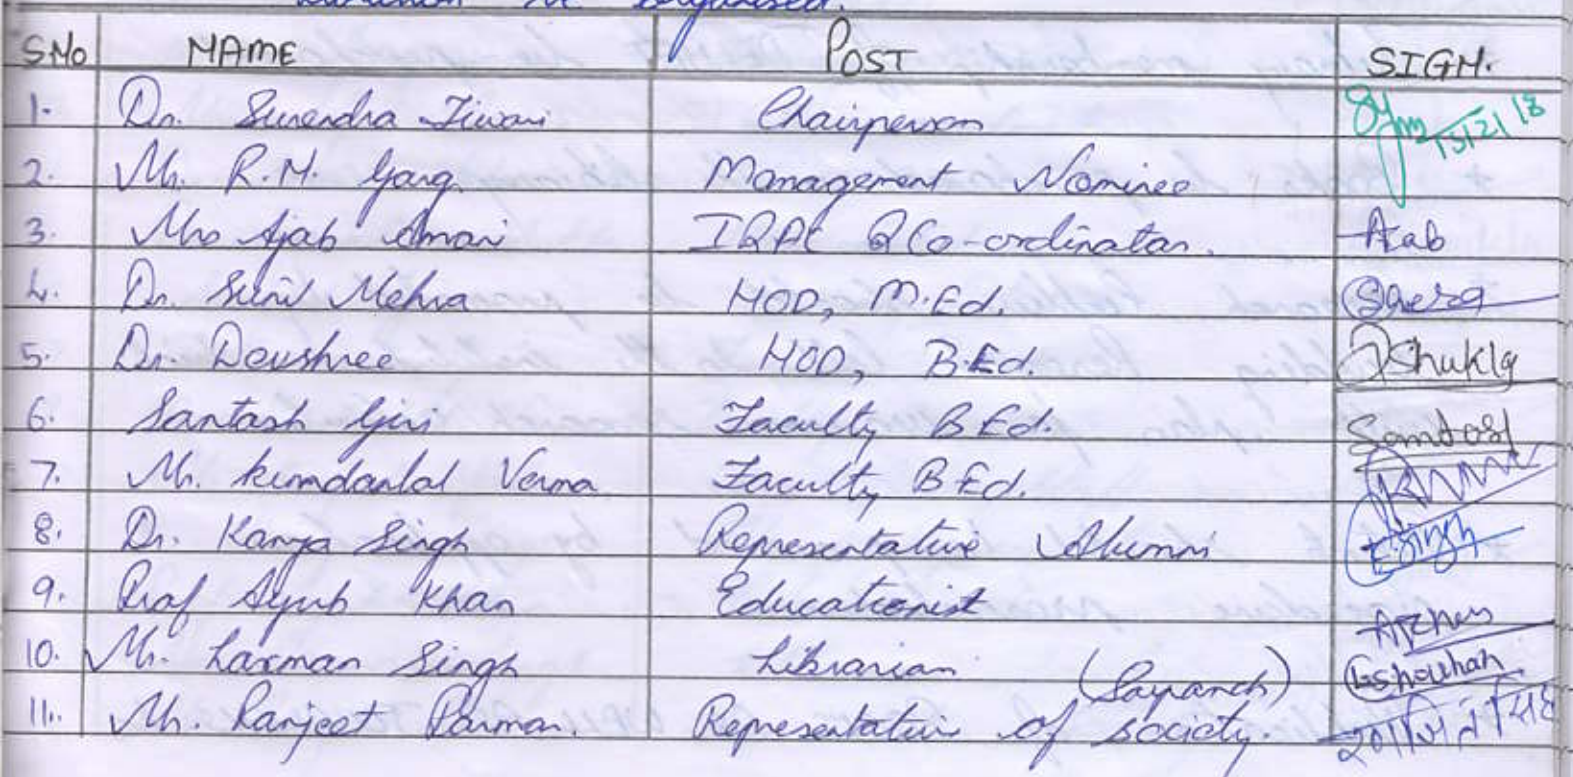 be organised.
SNo NAME POST SIGN.
1. Dr. Surendra Tiwari Chairperson 15/2/18
2. Mr. R.M. Garg. Management Nominee
3. Mrs Ajab IQAC Co-ordinator.
4. Dr. Sunil Mehra HOD, M.Ed.
5. Dr. Devshree HOD, B.Ed. Shukla
6. Santosh Giri Faculty B.Ed. Santosh
7. Mr. kundanlal Verma Faculty B.Ed.
8. Dr. Kanya Singh Representative Alumni Singh
9. Prof Ayub Khan Educationist
10. Mr. Laxman Singh Librarian
(Sarpanch)
11. Mr. Ranjeet Parmar. Representative of society.